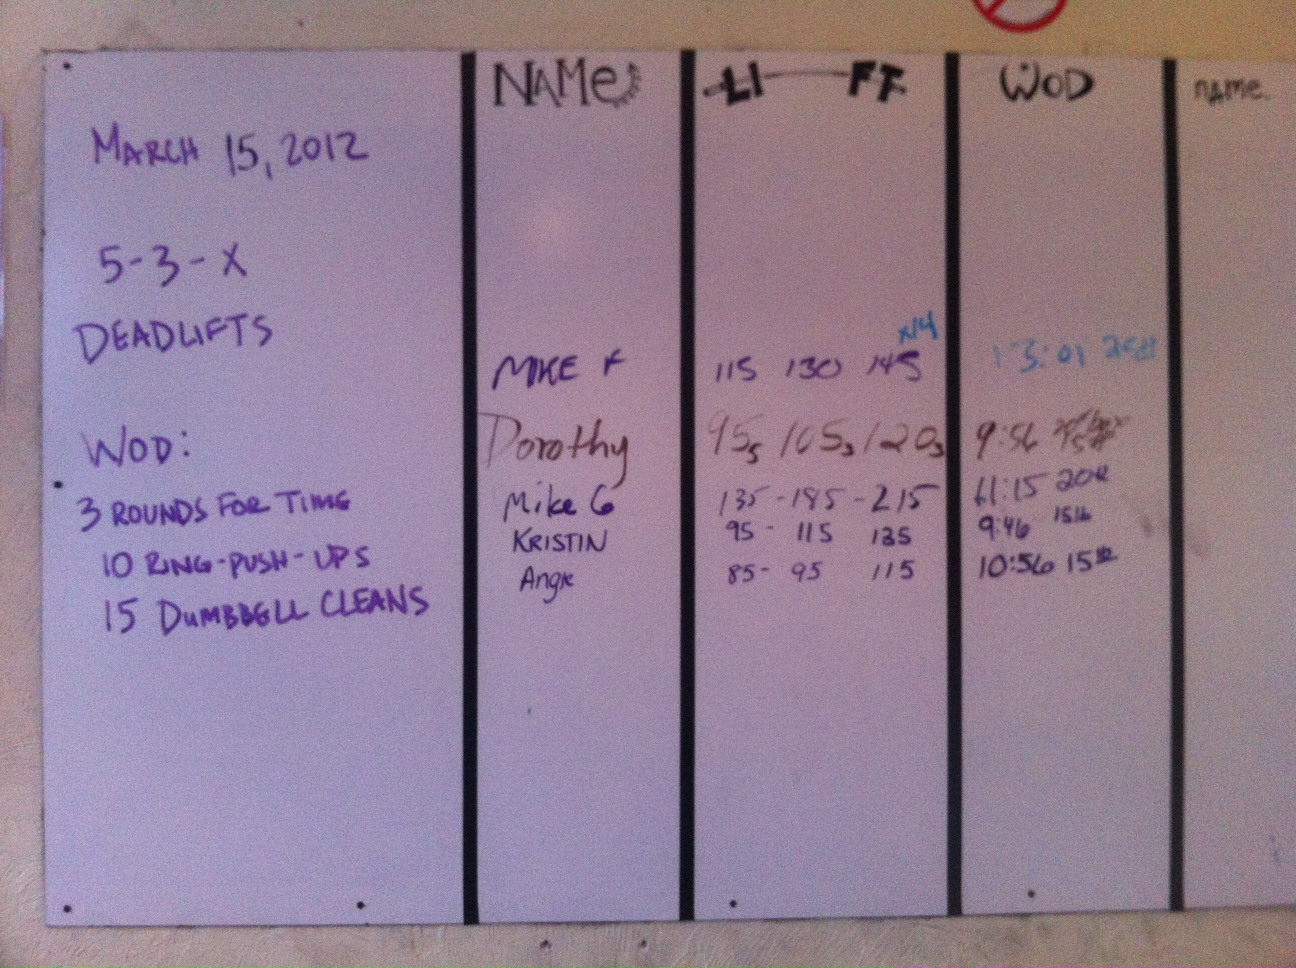 NAMe LIFT WOD nAme.
MARCH 15, 2012
5-3-X
DEADLIFTS
x14
MIKE F 115 130 145 13:01 25#
WOD:
Dorothy 95 5 105 3 120 3 9:56
3 ROUNDS FOR TIME
Mike G 135-185-215 11:15 20#
KRISTIN 95- 115 135 9:46 15lb
10 RING-PUSH-UPS
Angie 85- 95 115 10:56 15lb
15 DUMBBELL CLEANS